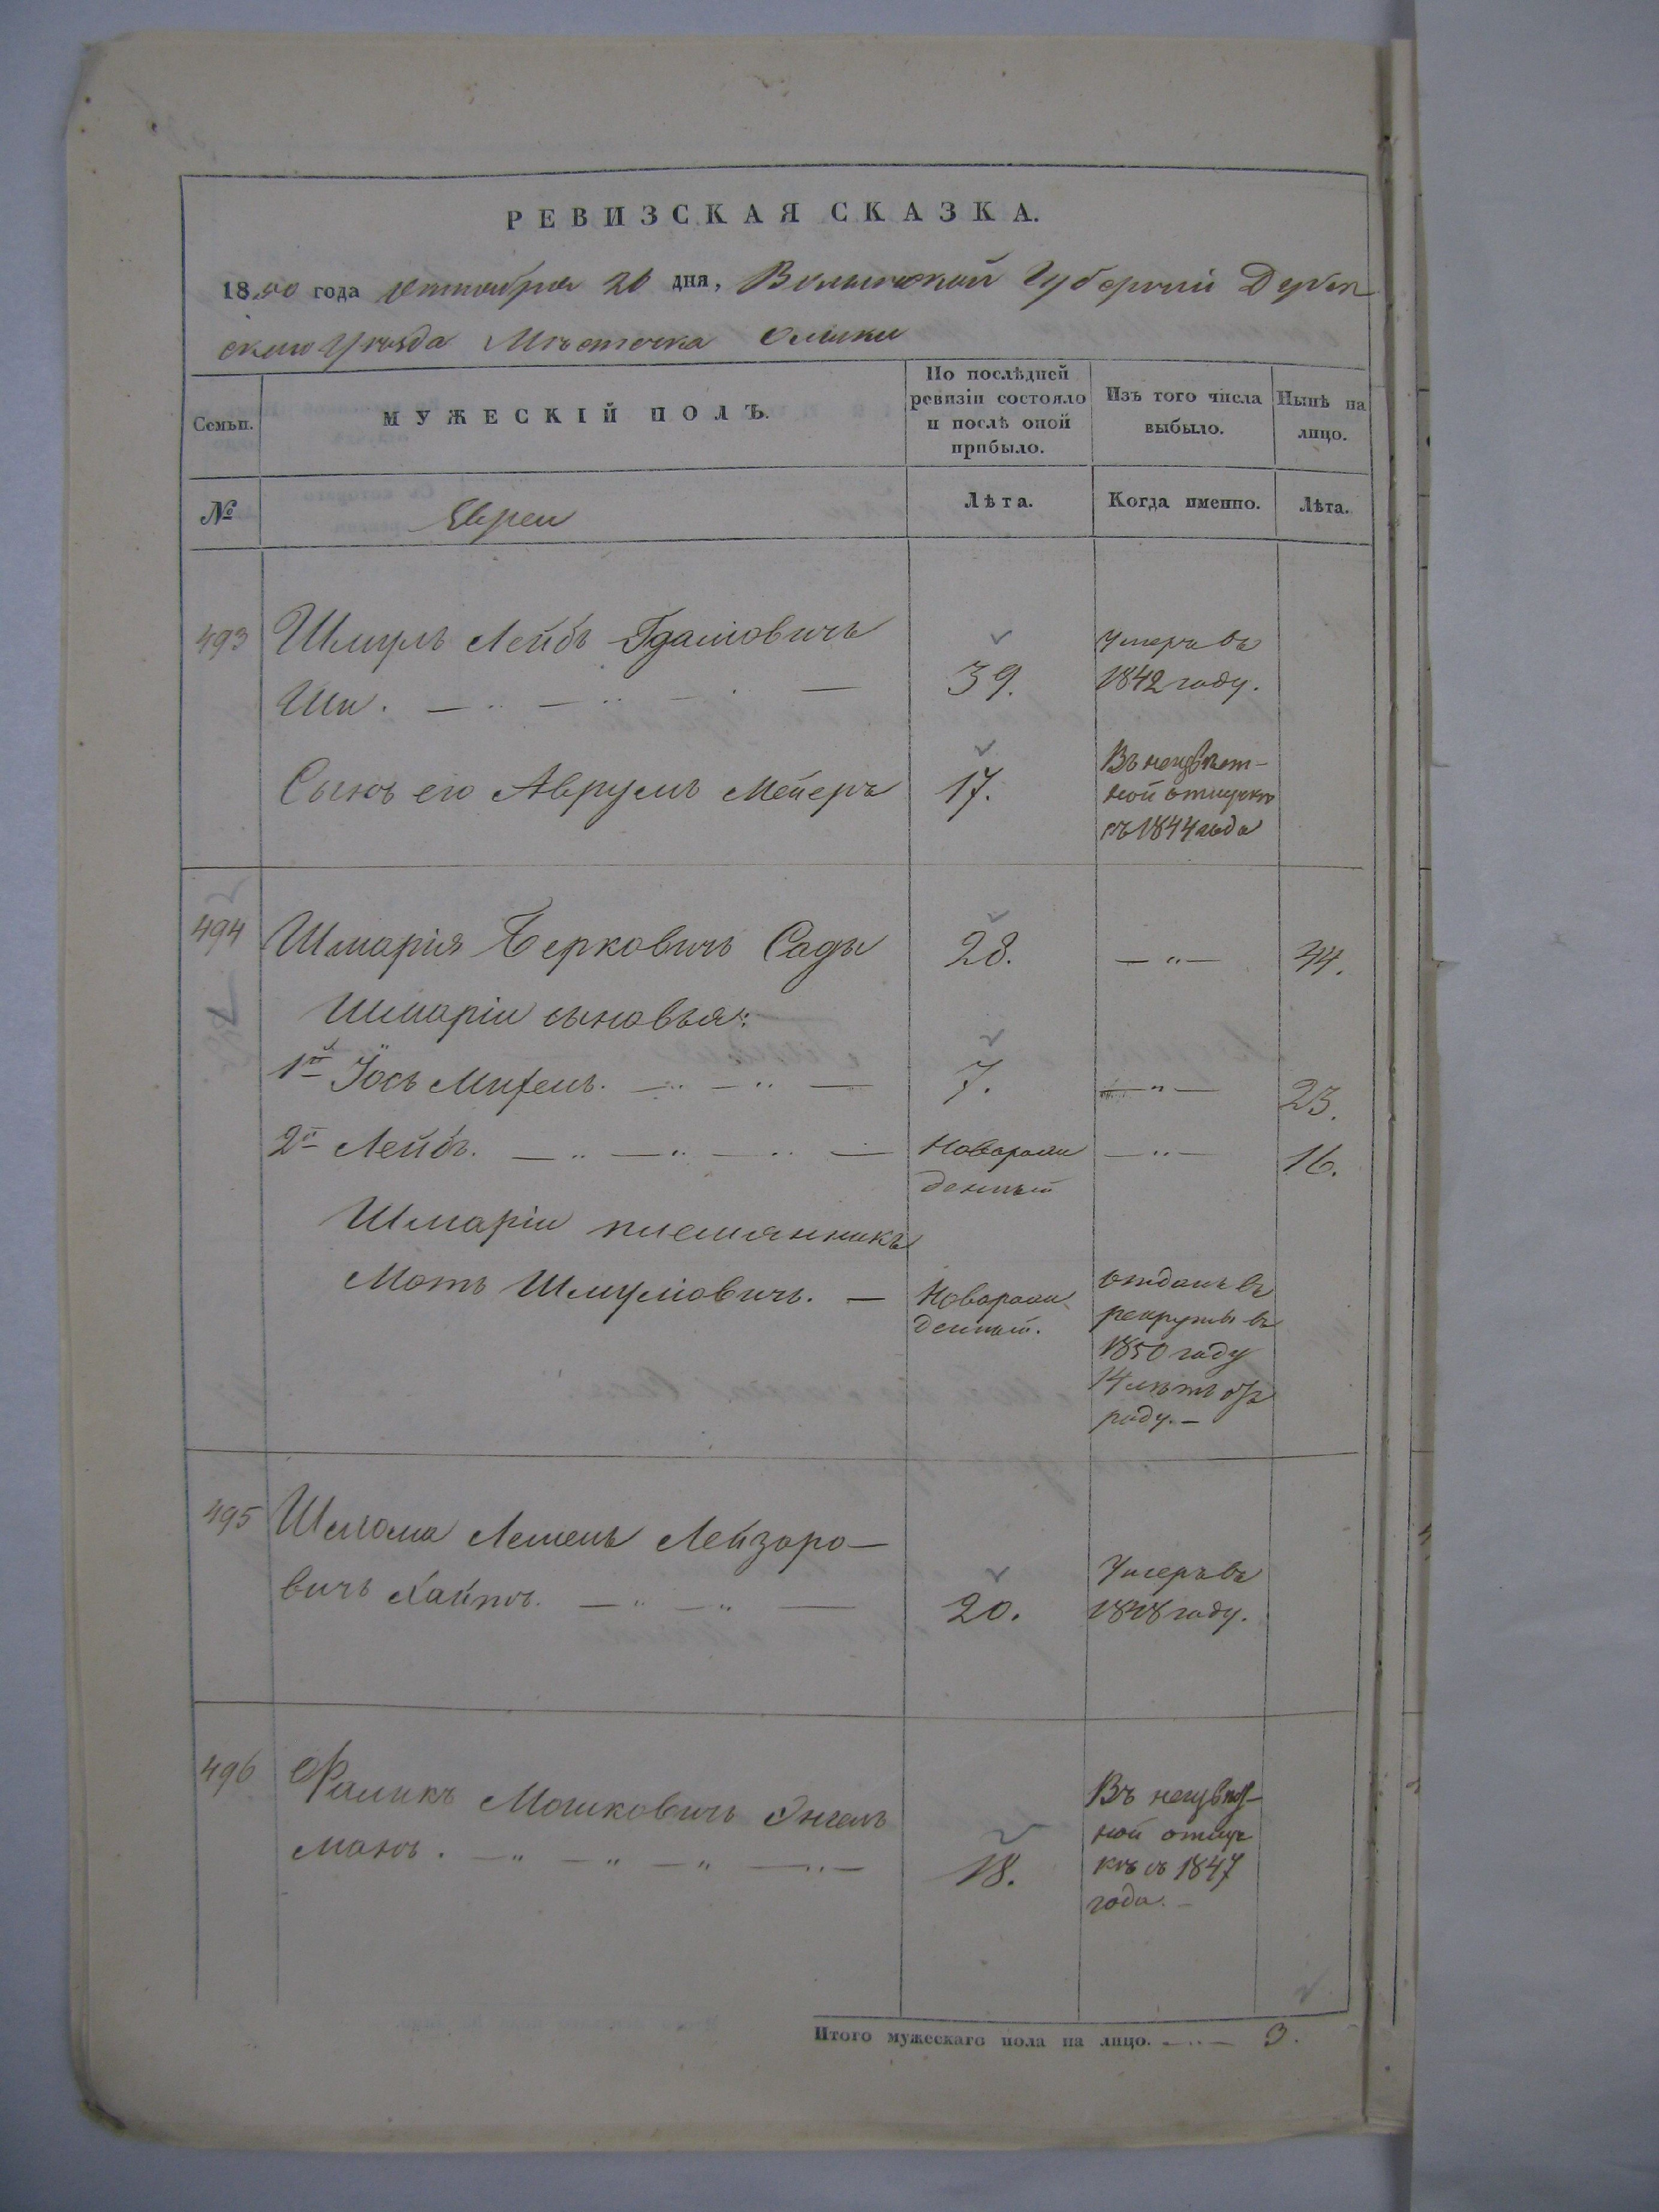 РЕВИЗСКАЯ СКАЗКА.
1850 года октября 20 дня, Волынской Губерніи Дубен
скаго Уѣзда Мѣстечка Олыки
Семьи.
МУЖЕСКІЙ ПОЛЪ.
По послѣдней
ревизіи состояло
и послѣ оной
прибыло.
Изъ того числа
выбыло.
Нынѣ на
лицо.
№
Евреи
Лѣта.
Когда именно.
Лѣта.
493 Шмуль Лейбъ Гдаліовичъ Умеръ въ
39. 1842 году.
Сынъ его Аврумъ Мейеръ 17. Въ неизвѣст-
ной отлучкѣ
съ 1844 года
494 Шмарія Берковичъ Сады 28. — " — 44.
Шмаріи сыновья:
1й Іось Михель. — " — " — 7. — " — 23.
2й Лейбъ. — " — " — " — Новорож — " — 16.
денный
Шмаріи племянникъ
Мотъ Шмуліовичъ. — Новорож
денный.
отданъ въ
рекруты въ
1850 году
14 лѣтъ отъ
роду. —
495 Шлома Лейзоро-
вичъ — " — " — 20. Умеръ въ
1848 году.
496 Фаликъ Мошковичъ Энгель
манъ. — " — " — " — " — 18.
Въ неизвѣст-
ной отлуч
кѣ съ 1847
года. —
Итого мужескаго пола на лицо. — " — 3.